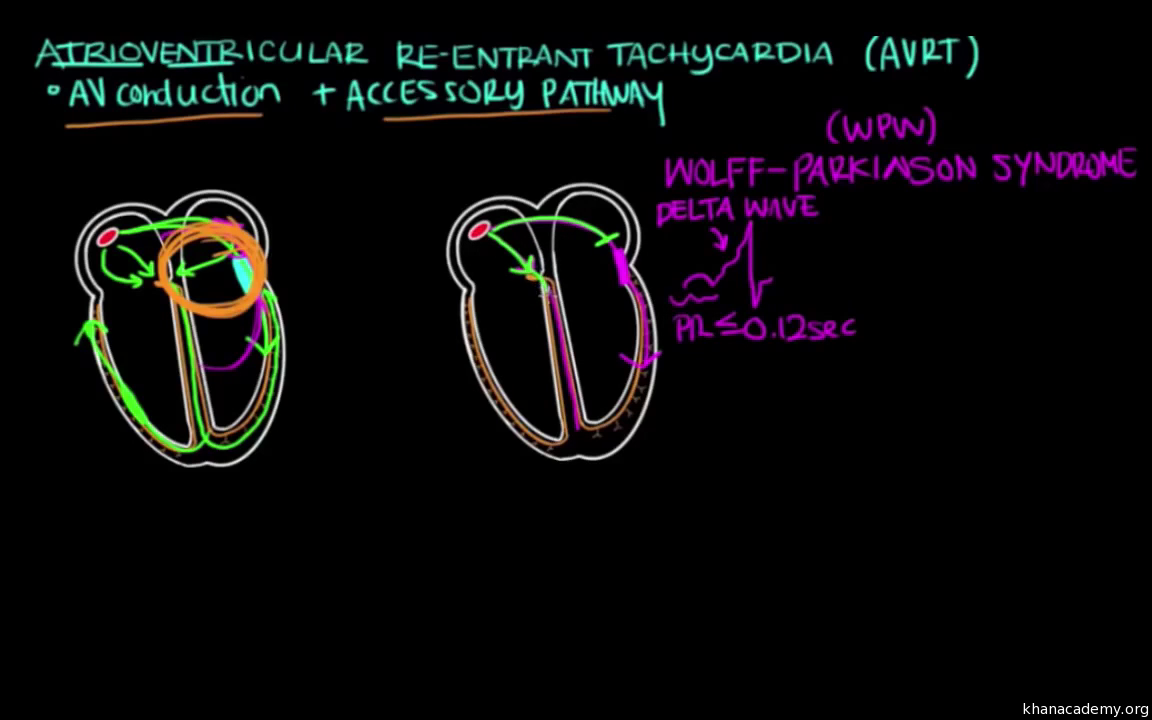 ATRIOVENTRICULAR RE-ENTRANT TACHYCARDIA (AVRT)
• AV conduction + ACCESSORY PATHWAY
(WPW)
WOLFF-PARKINSON SYNDROME
DELTA WAVE
PR ≤ 0.12 sec
khanacademy.org